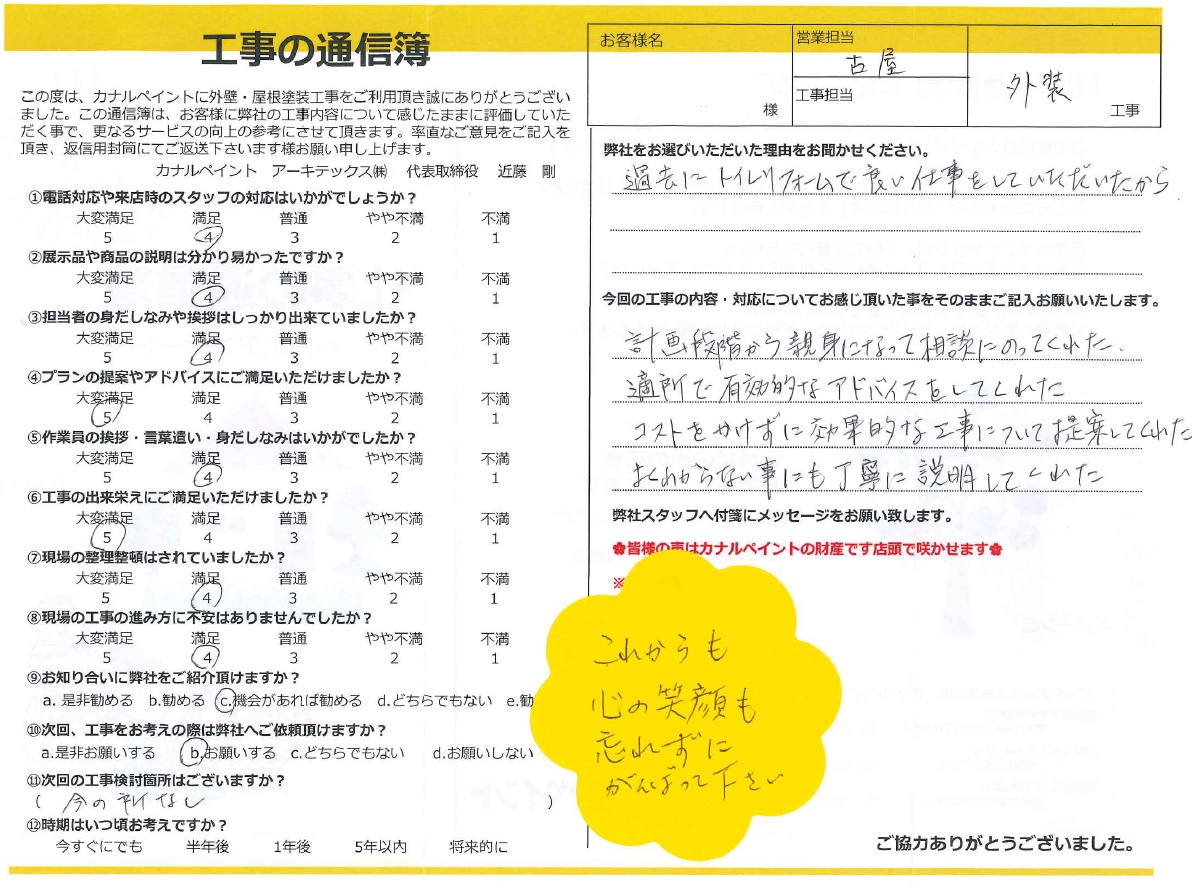 工事の通信簿
この度は、カナルペイントに外壁・屋根塗装工事をご利用頂き誠にありがとうござい
ました。この通信簿は、お客様に弊社の工事内容について感じたままに評価していた
だく事で、更なるサービスの向上の参考にさせて頂きます。率直なご意見をご記入を
頂き、返信用封筒にてご返送下さいます様お願い申し上げます。
カナルペイント アーキテックス㈱ 代表取締役 近藤 剛
①電話対応や来店時のスタッフの対応はいかがでしょうか？
大変満足 満足 普通 やや不満 不満
5 4 3 2 1
②展示品や商品の説明は分かり易かったですか？
大変満足 満足 普通 やや不満 不満
5 4 3 2 1
③担当者の身だしなみや挨拶はしっかり出来ていましたか？
大変満足 満足 普通 やや不満 不満
5 4 3 2 1
④プランの提案やアドバイスにご満足いただけましたか？
大変満足 満足 普通 やや不満 不満
5 4 3 2 1
⑤作業員の挨拶・言葉遣い・身だしなみはいかがでしたか？
大変満足 満足 普通 やや不満 不満
5 4 3 2 1
⑥工事の出来栄えにご満足いただけましたか？
大変満足 満足 普通 やや不満 不満
5 4 3 2 1
⑦現場の整理整頓はされていましたか？
大変満足 満足 普通 やや不満 不満
5 4 3 2 1
⑧現場の工事の進み方に不安はありませんでしたか？
大変満足 満足 普通 やや不満 不満
5 4 3 2 1
⑨お知り合いに弊社をご紹介頂けますか？
a. 是非勧める b.勧める c.機会があれば勧める d.どちらでもない e.勧
⑩次回、工事をお考えの際は弊社へご依頼頂けますか？
a.是非お願いする b.お願いする c.どちらでもない d.お願いしない
⑪次回の工事検討箇所はございますか？
( 今の所なし )
⑫時期はいつ頃お考えですか？
今すぐにでも 半年後 1年後 5年以内 将来的に
お客様名
様
営業担当
古屋
工事担当
外装
工事
弊社をお選びいただいた理由をお聞かせください。
過去にトイレリフォームで良い仕事をしていただいたから
今回の工事の内容・対応についてお感じ頂いた事をそのままご記入お願いいたします。
計画段階から親身になって相談にのってくれた.
適所で有効的なアドバイスをしてくれた
コストをかけずに効果的な工事について提案してくれた
よくわからない事にも丁寧に説明してくれた
弊社スタッフへ付箋にメッセージをお願い致します。
✿皆様の声はカナルペイントの財産です店頭で咲かせます✿
※
これからも
心の笑顔も
忘れずに
がんばって下さい
ご協力ありがとうございました。